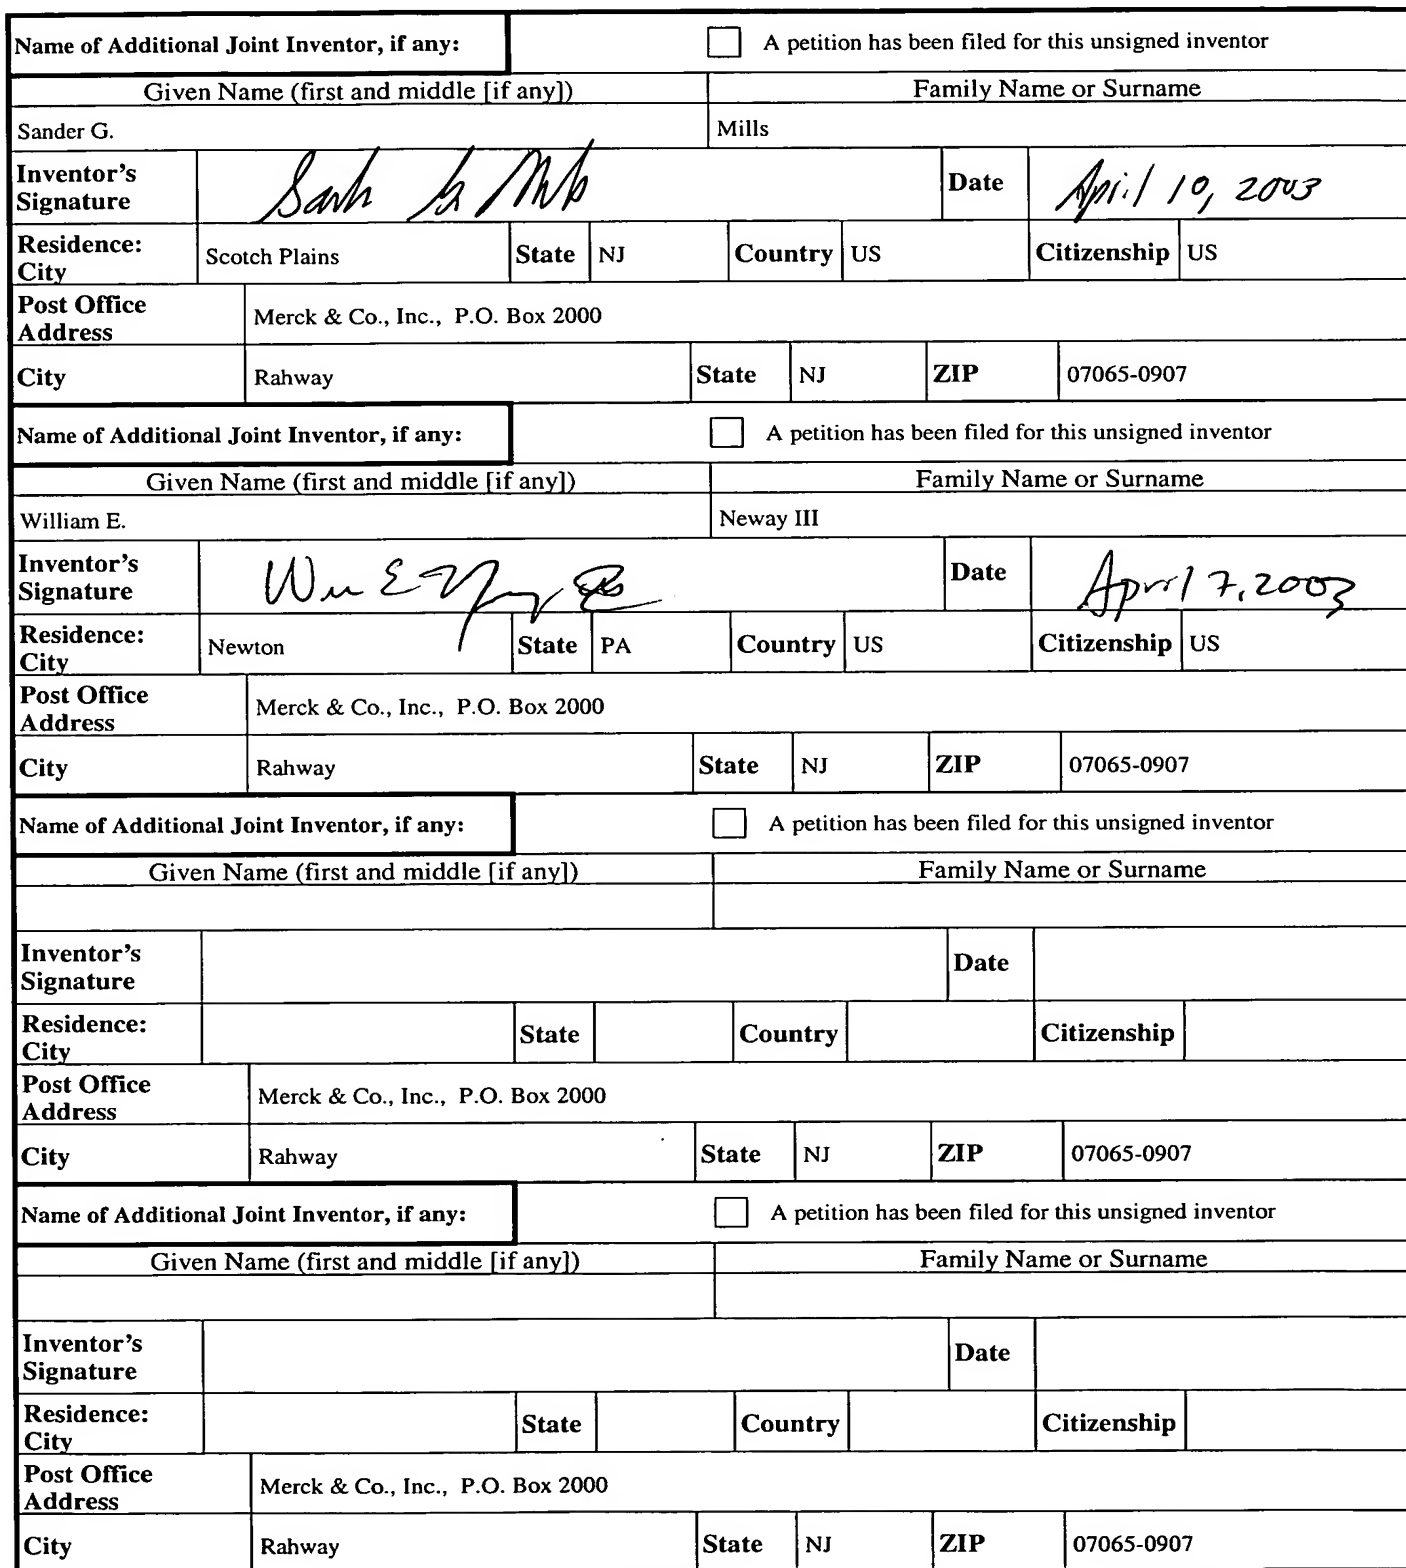 Name of Additional Joint Inventor, if any: A petition has been filed for this unsigned inventor
Given Name (first and middle [if any]) Family Name or Surname
Sander G. Mills
Inventor's Signature Date April 10, 2003
Residence: City Scotch Plains State NJ Country US Citizenship US
Post Office Address Merck & Co., Inc., P.O. Box 2000
City Rahway State NJ ZIP 07065-0907
Name of Additional Joint Inventor, if any: A petition has been filed for this unsigned inventor
Given Name (first and middle [if any]) Family Name or Surname
William E. Neway III
Inventor's Signature Date April 7, 2003
Residence: City Newton State PA Country US Citizenship US
Post Office Address Merck & Co., Inc., P.O. Box 2000
City Rahway State NJ ZIP 07065-0907
Name of Additional Joint Inventor, if any: A petition has been filed for this unsigned inventor
Given Name (first and middle [if any]) Family Name or Surname
Inventor's Signature Date
Residence: City State Country Citizenship
Post Office Address Merck & Co., Inc., P.O. Box 2000
City Rahway State NJ ZIP 07065-0907
Name of Additional Joint Inventor, if any: A petition has been filed for this unsigned inventor
Given Name (first and middle [if any]) Family Name or Surname
Inventor's Signature Date
Residence: City State Country Citizenship
Post Office Address Merck & Co., Inc., P.O. Box 2000
City Rahway State NJ ZIP 07065-0907